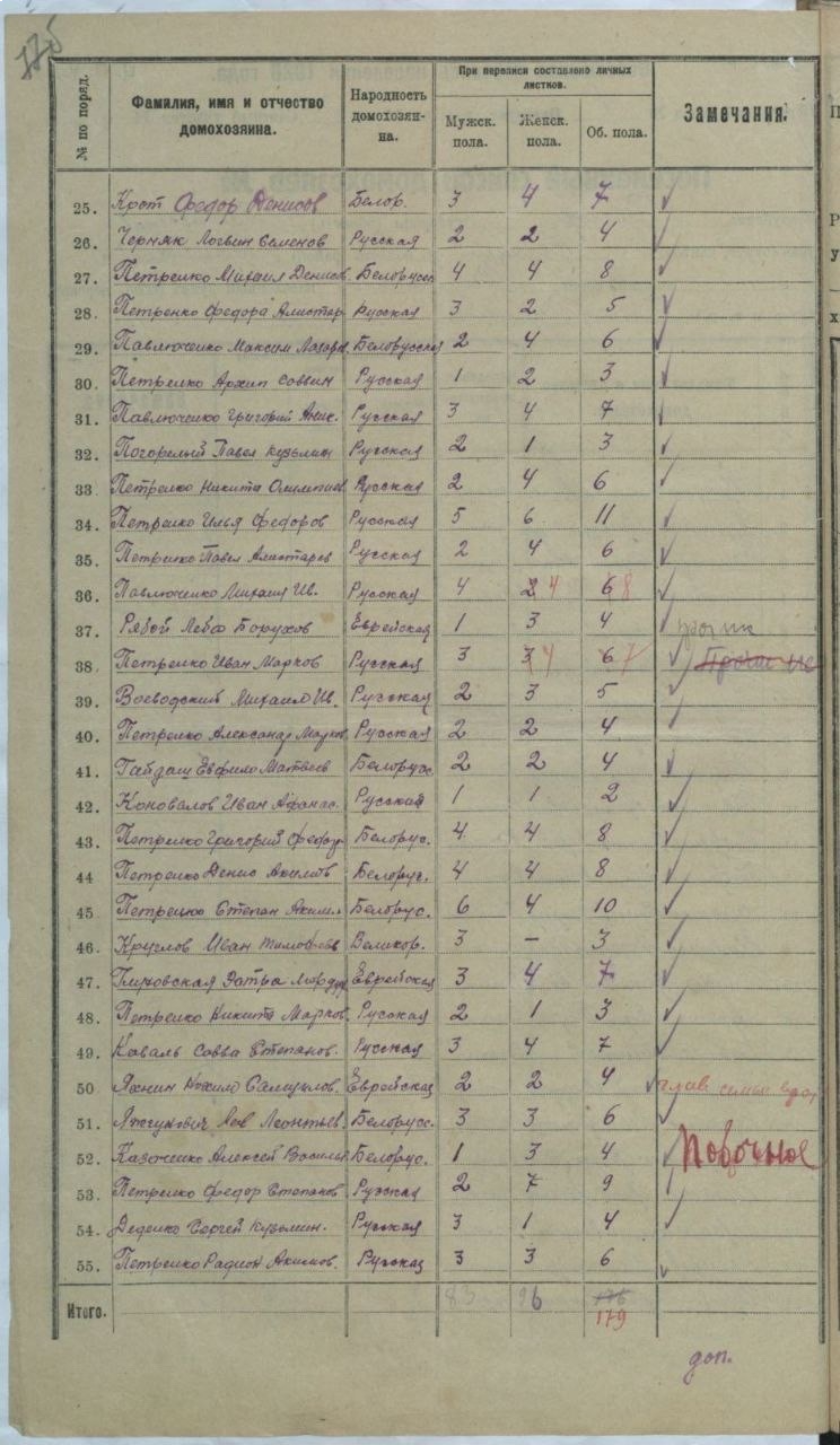 175
№ по поряд. Фамилия, имя и отчество домохозяина. Народность домохозяи-на. При переписи составлено личных листков. Замечания.
Мужск. пола. Женск. пола. Об. пола.
25. Крот Федор Денисов Белор. 3 4 7 ✓
26. Черняк Логвин Семенов Русская 2 2 4 ✓
27. Петренко Михаил Денисов. Белорусск 4 4 8 ✓
28. Петренко Федора Алистар Русская 3 2 5 ✓
29. Павлюченко Максим Лазарев. Белорусская 2 4 6 ✓
30. Петренко Архип Саввин Русская 1 2 3 ✓
31. Павлюченко Григорий Русская 3 4 7 ✓
32. Погорелый Павел Кузьмин Русская 2 1 3 ✓
33. Петренко Никита Олимпиев Русская 2 4 6 ✓
34. Петренко Илья Федоров Русская 5 6 11 ✓
35. Петренко Павел Алистарев Русская 2 4 6 ✓
36. Павлюченко Михаил Ив. Русская 4 2 4 6 8 ✓
37. Рябой Лейба Борухов Еврейская 1 3 4 ✓
38. Петренко Иван Марков Русская 3 3 4 6 7 ✓
39. Воеводский Михаил Ив. Русская 2 3 5 ✓
40. Петренко Александр Марков Русская 2 2 4 ✓
41. Гайдаш Матвеев Белорусс. 2 2 4 ✓
42. Коновалов Иван Афанас. Русский 1 1 2 ✓
43. Петренко Григорий Федор Белорус. 4 4 8 ✓
44 Петренко Денис Белорус. 4 4 8 ✓
45. Петренко Степан Белорус. 6 4 10 ✓
46. Круглов Иван Тимофеев Великор. 3 – 3 ✓
47. Еврейская 3 4 7 ✓
48. Петренко Никита Марков. Русская 2 1 3 ✓
49. Коваль Савва Степанов. Русская 3 4 7 ✓
50 Самуилов. Еврейская 2 2 4 ✓ глав семьи
51. Леонтьев. Белорусс. 3 3 6 ✓
52. Казаченко Алексей Васильев Белорус. 1 3 4 ✓
53. Петренко Федор Степанов Русская 2 7 9
54. Деденко Сергей Кузьмин. Русская 3 1 4 ✓
55. Петренко Радион Акимов. Русская 3 3 6 ✓
Итого. 83 96 176
179
доп.